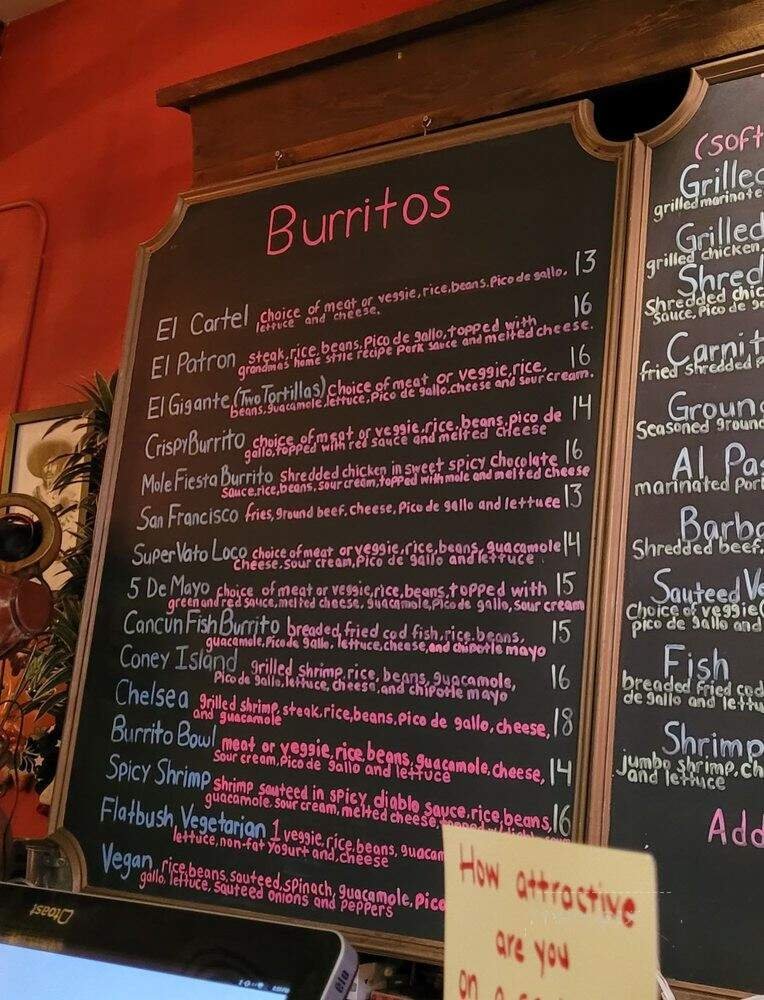 Burritos
El Cartel choice of meat or veggie, rice, beans, Pico de gallo, 13
lettuce and cheese.
El Patron steak, rice, beans, Pico de gallo, topped with 16
grandmas home style recipe Pork sauce and melted cheese.
El Gigante (Two Tortillas) Choice of meat or veggie, rice, 16
beans, guacamole, lettuce, Pico de gallo, cheese and sour cream.
Crispy Burrito choice of meat or veggie, rice, beans, pico de 14
gallo, topped with red sauce and melted cheese
Mole Fiesta Burrito shredded chicken in sweet spicy chocolate 16
sauce, rice, beans, sour cream, topped with mole and melted cheese
San Francisco fries, ground beef, cheese, Pico de gallo and lettuce 13
Super Vato Loco choice of meat or veggie, rice, beans, guacamole 14
cheese, sour cream, Pico de gallo and lettuce
5 De Mayo choice of meat or veggie, rice, beans, topped with 15
green and red sauce, melted cheese, guacamole, Pico de gallo, sour cream
Cancun Fish Burrito breaded, fried cod fish, rice, beans, 15
guacamole, Pico de gallo, lettuce, cheese, and chipotle mayo
Coney Island grilled shrimp, rice, beans, guacamole, 16
Pico de gallo, lettuce, cheese, and chipotle mayo
Chelsea grilled shrimp, steak, rice, beans, Pico de gallo, cheese, 18
and guacamole
Burrito Bowl meat or veggie, rice, beans, guacamole, cheese, 14
Sour cream, Pico de gallo and lettuce
Spicy Shrimp shrimp sauteed in spicy, diablo sauce, rice, beans, 16
guacamole, sour cream, melted cheese,
Flatbush Vegetarian 1 veggie, rice, beans, guacam
lettuce, non-fat yogurt and, cheese
Vegan rice, beans, sauteed, spinach, guacamole, Pico
gallo, lettuce, sauteed onions and peppers
(Soft
Grilled
grilled marinate
Grilled
grilled chicken,
Shred
Shredded chic
Sauce, Pico de ga
Carnit
fried shredded P
Groun
Seasoned ground
Al Pas
marinated Por
Barba
Shredded beef,
Sauteed Ve
Choice of veggie(
pico de gallo and
Fish
breaded fried cod
de gallo and lettu
Shrimp
jumbo shrimp, ch
and lettuce
Add
toast
How attractive
are you
on a